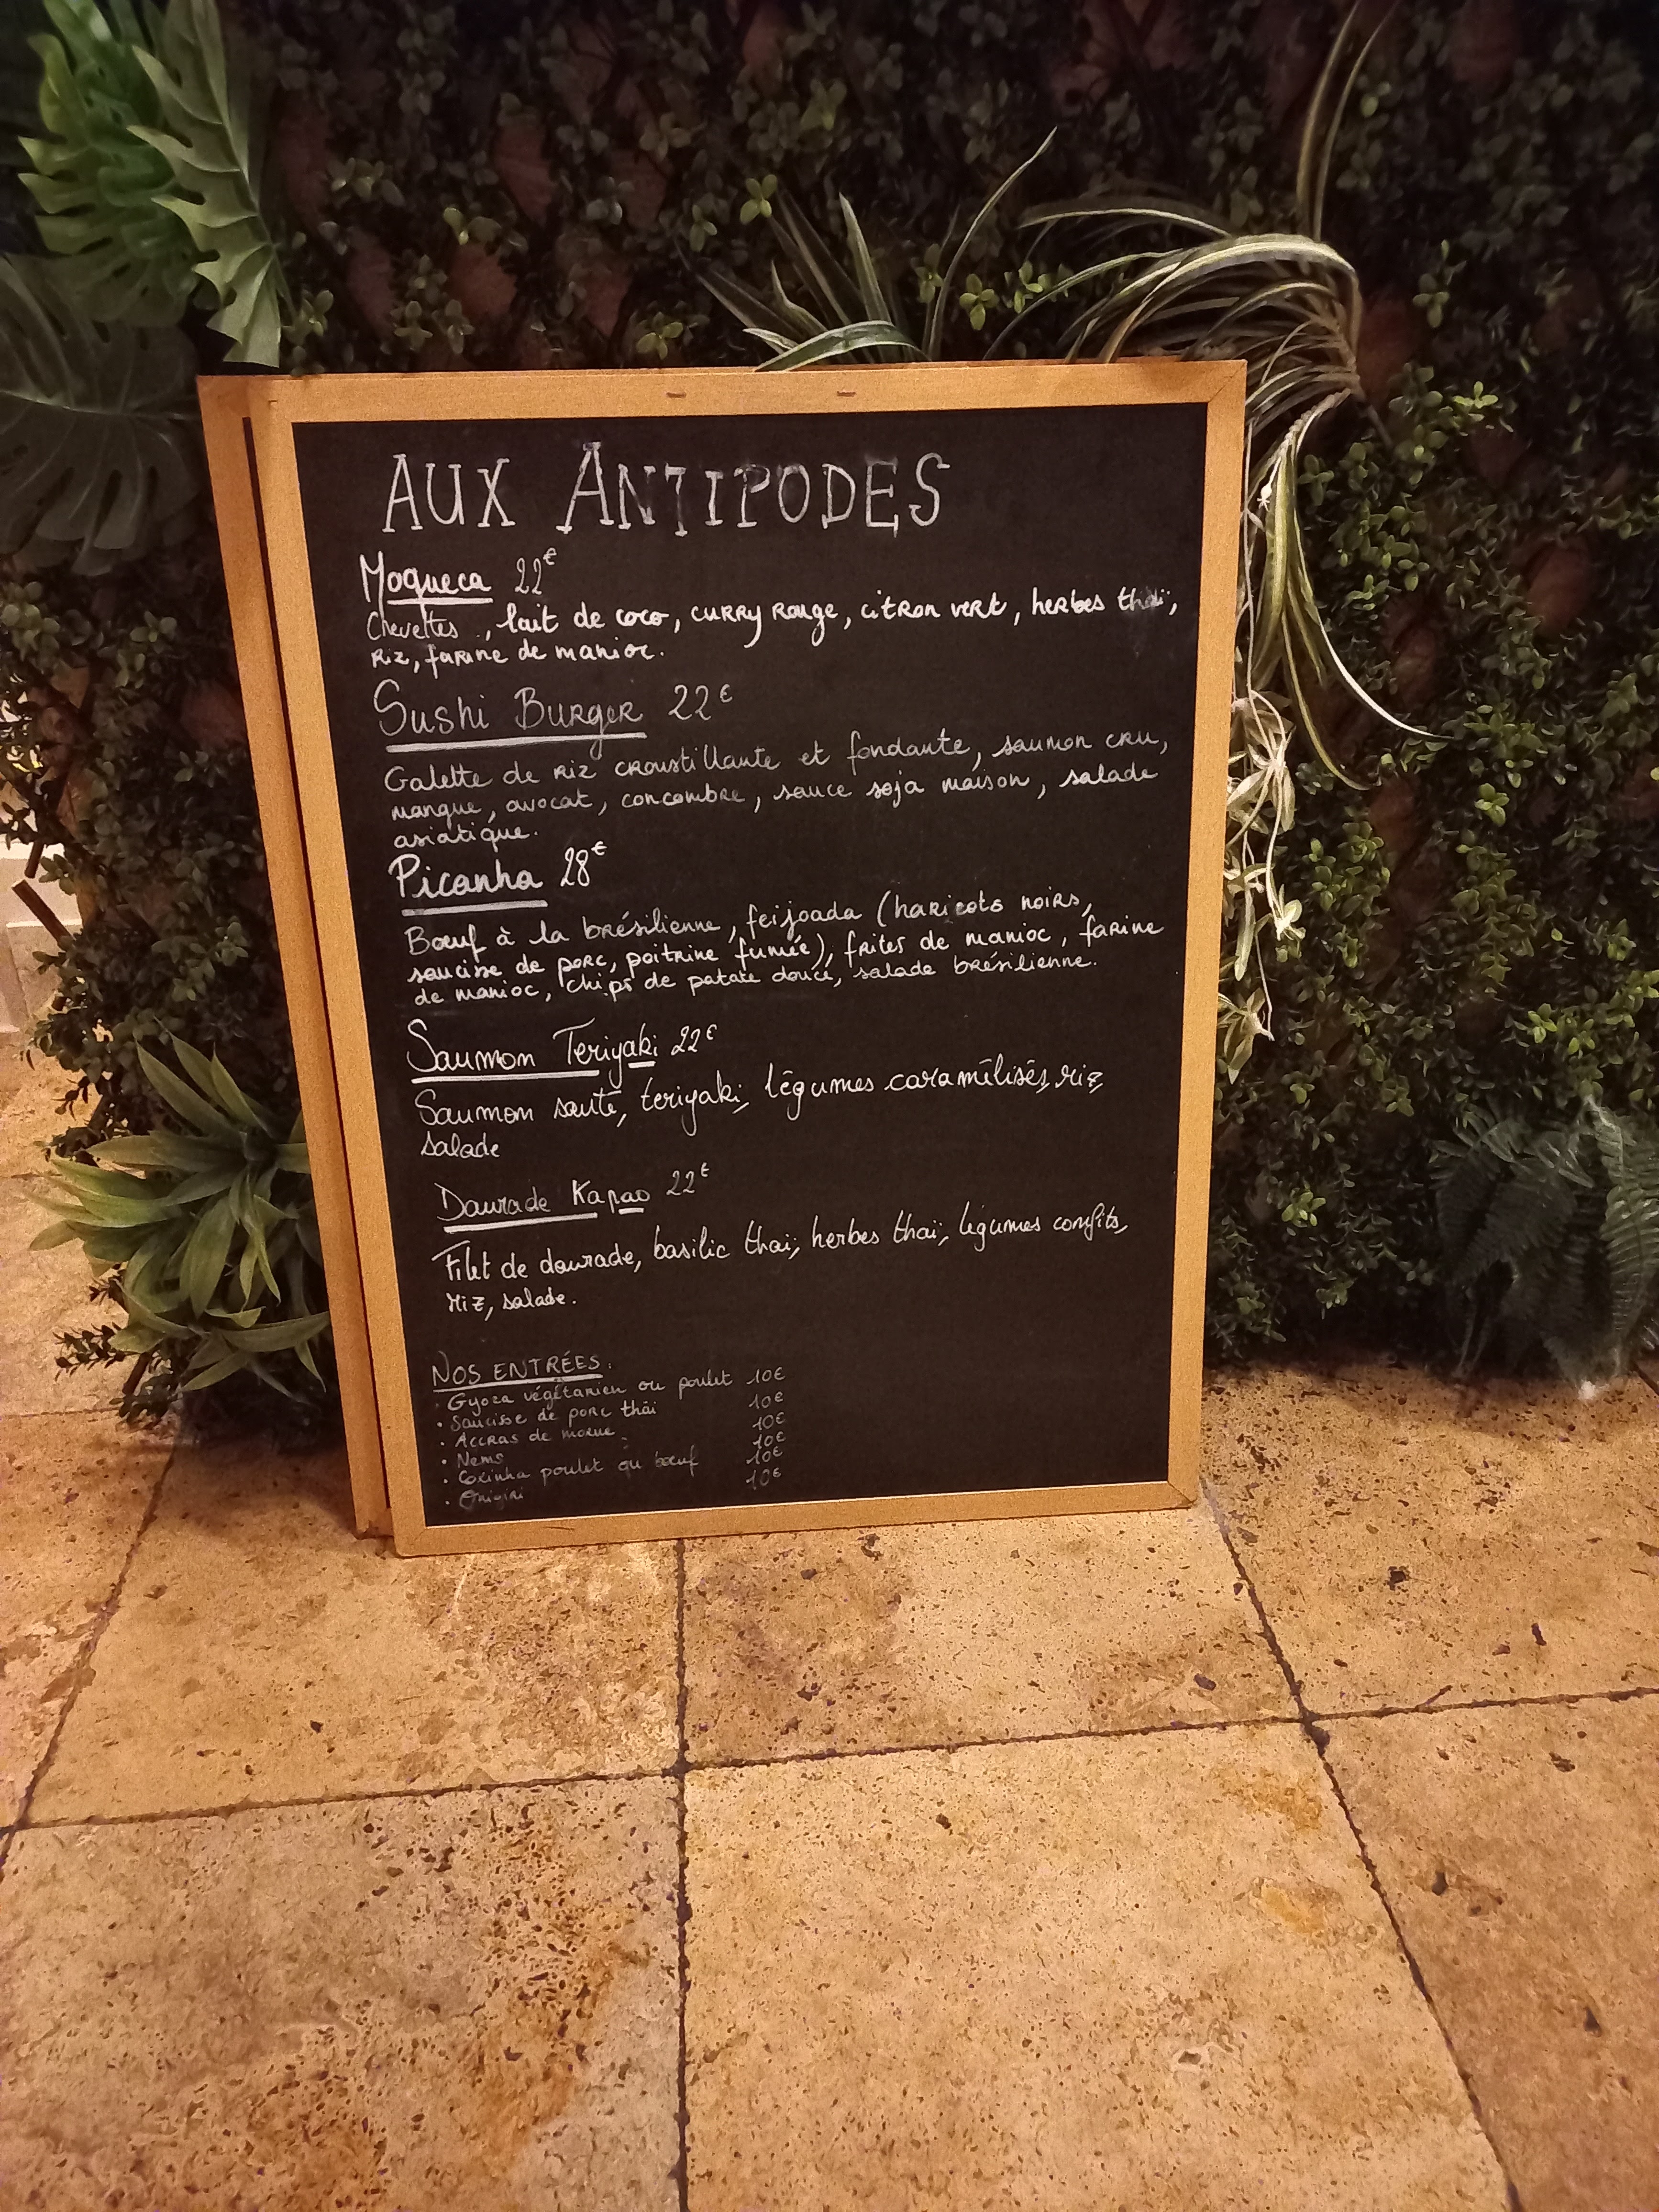 AUX ANTIPODES
Moqueca 22€
Chevettes, lait de coco, curry rouge, citron vert, herbes thaï,
riz, farine de manioc.
Sushi Burger 22€
Galette de riz croustillante et fondante, saumon cru,
mangue, avocat, concombre, sauce soja maison, salade
asiatique.
Picanha 28€
Bœuf à la brésilienne, feijoada (haricots noirs,
saucisse de porc, poitrine fumée), frites de manioc, farine
de manioc, chips de patate douce, salade brésilienne.
Saumon Teriyaki 22€
Saumon sauté, teriyaki, légumes caramélisés, riz,
salade
Daurade Kapao 22€
Filet de daurade, basilic thaï, herbes thaï, légumes confits,
riz, salade.
NOS ENTRÉES:
• Gyoza végétarien ou poulet 10€
• Saucisse de porc thaï 10€
• Accras de morue 10€
• Nems 10€
• Coxinha poulet ou bœuf 10€
• Onigiri 10€